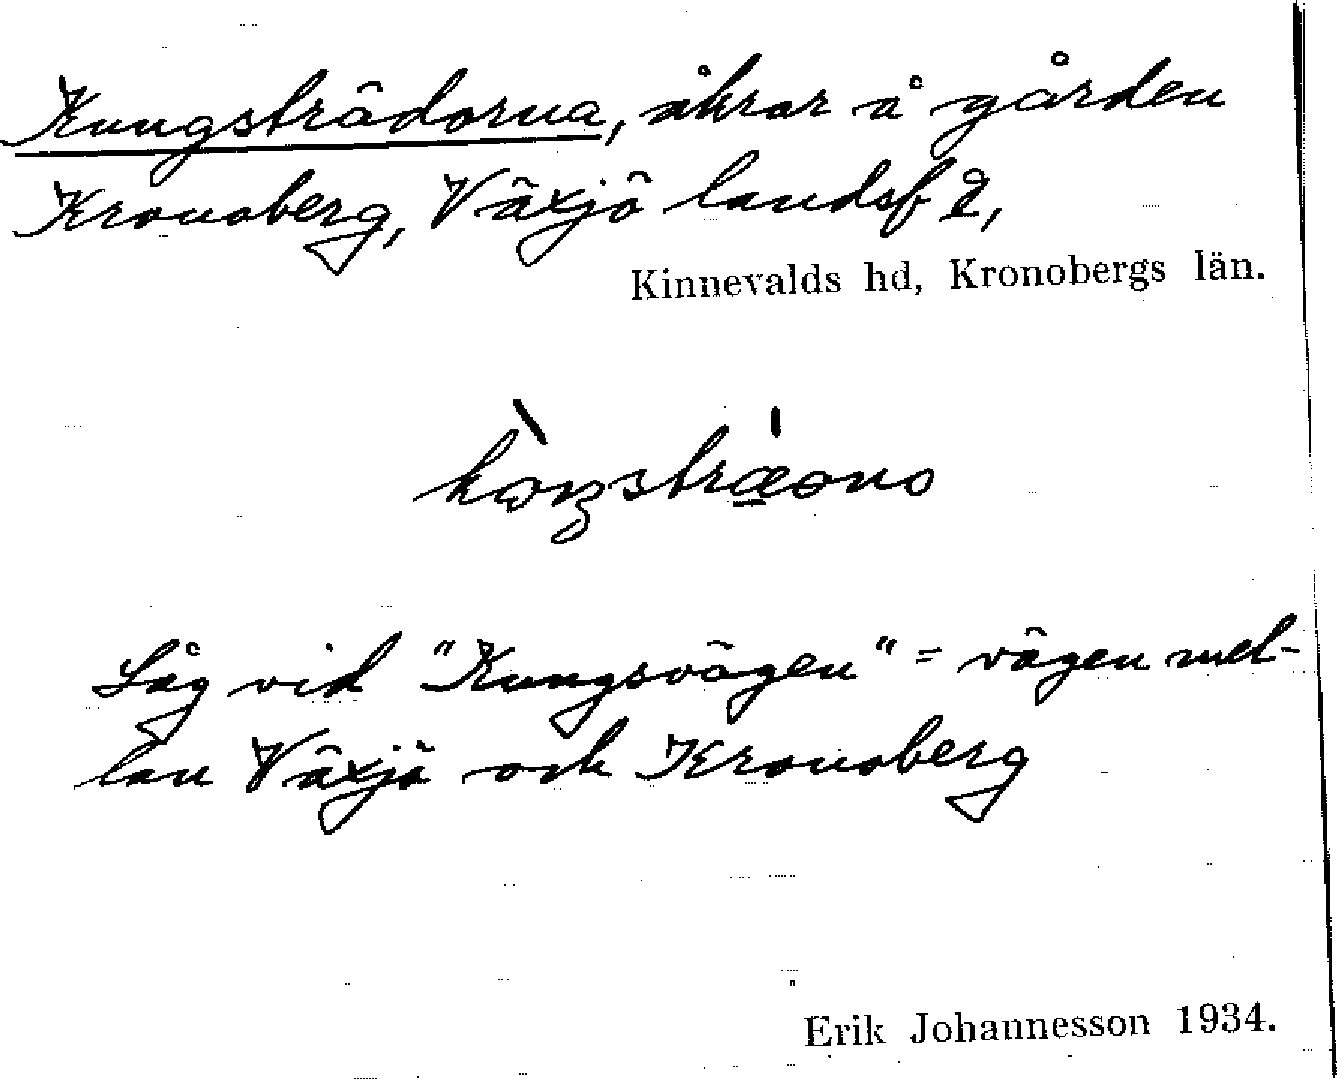 Kungsträdorna, åkrar å gården
Kronoberg, Växjö landsf 2,
Kinnevalds hd, Kronobergs län.
Låg vid "Kungsvägen" = vägen mel-
lan Växjö och Kronoberg
Erik Johannesson 1934.